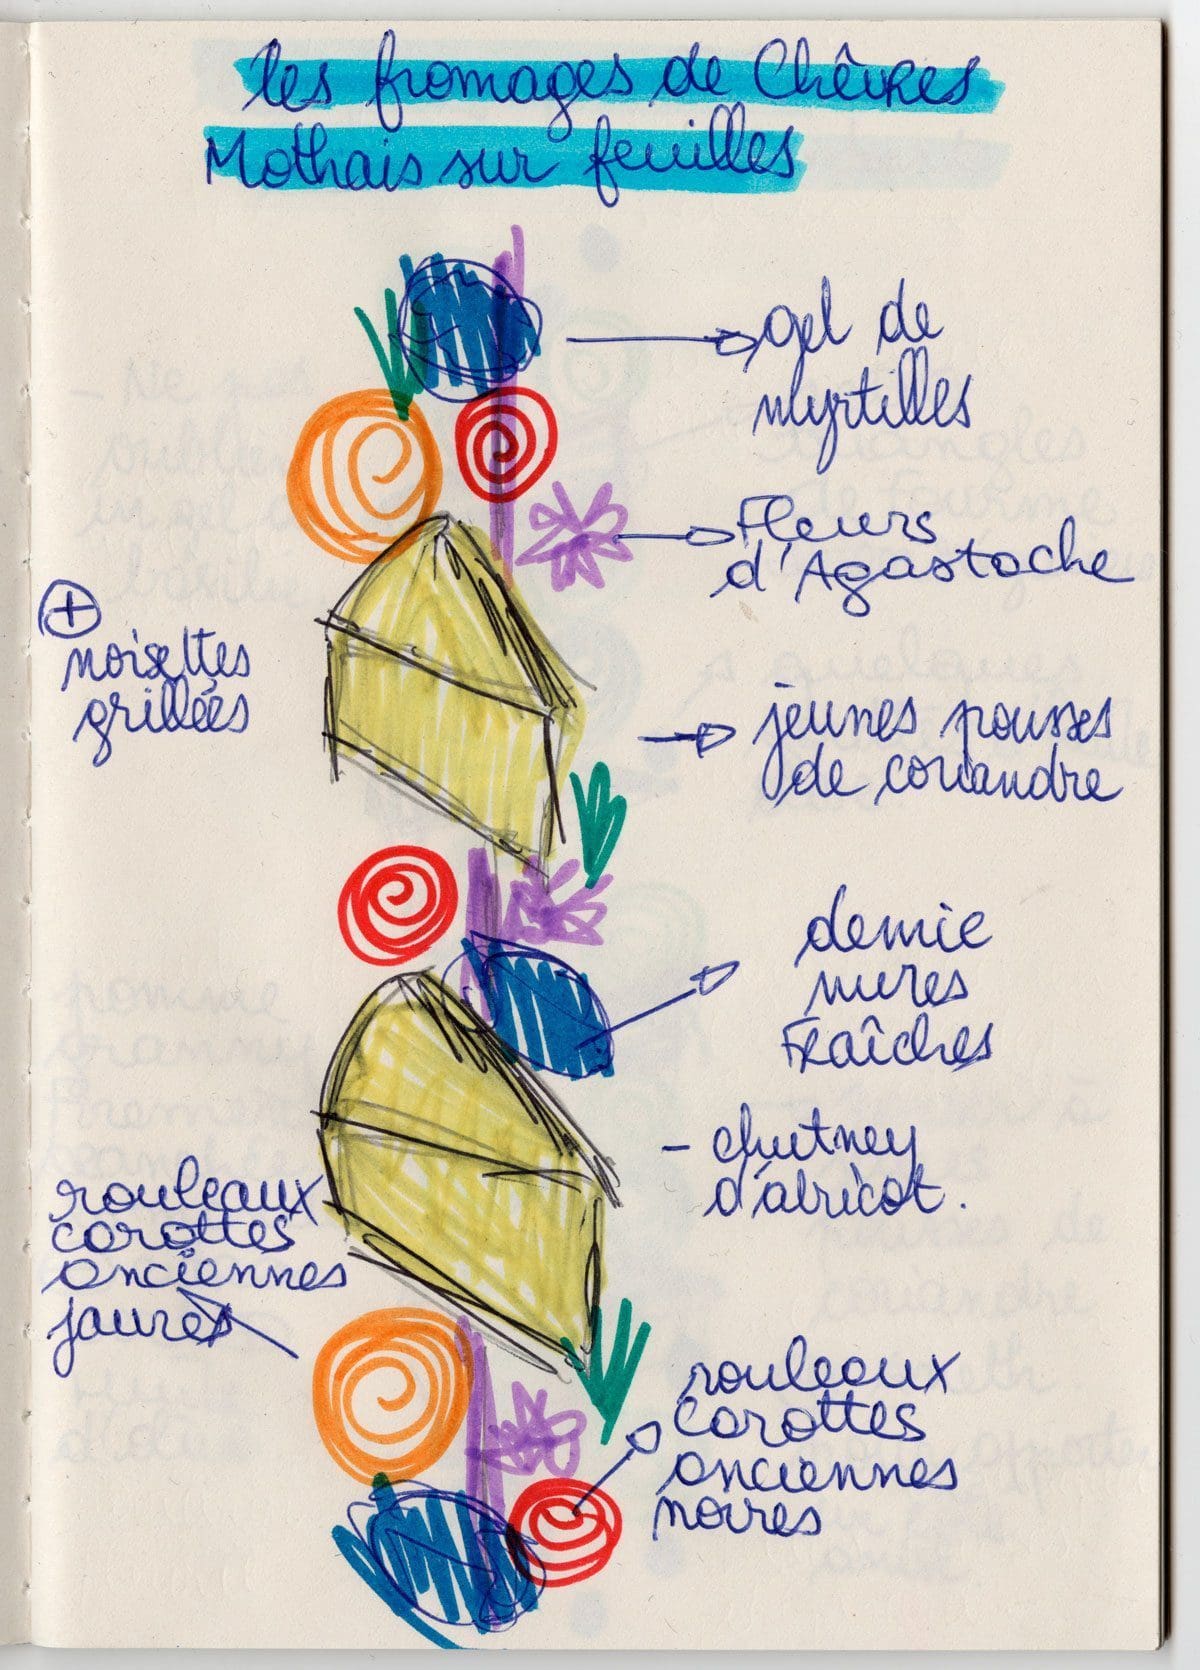 les fromages de Chêvres
Mothais sur feuilles
gel de
myrtilles
Fleurs
d'Agastache
⊕
noisettes
grillées
jeunes pousses
de coriandre
demie
mures
Fraîches
- chutney
d'abricot.
rouleaux
carottes
anciennes
jaunes
rouleaux
carottes
anciennes
noires